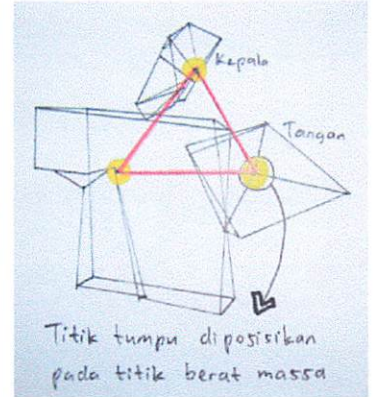 Kepala
Tangan
Titik tumpu diposisikan
pada titik berat massa